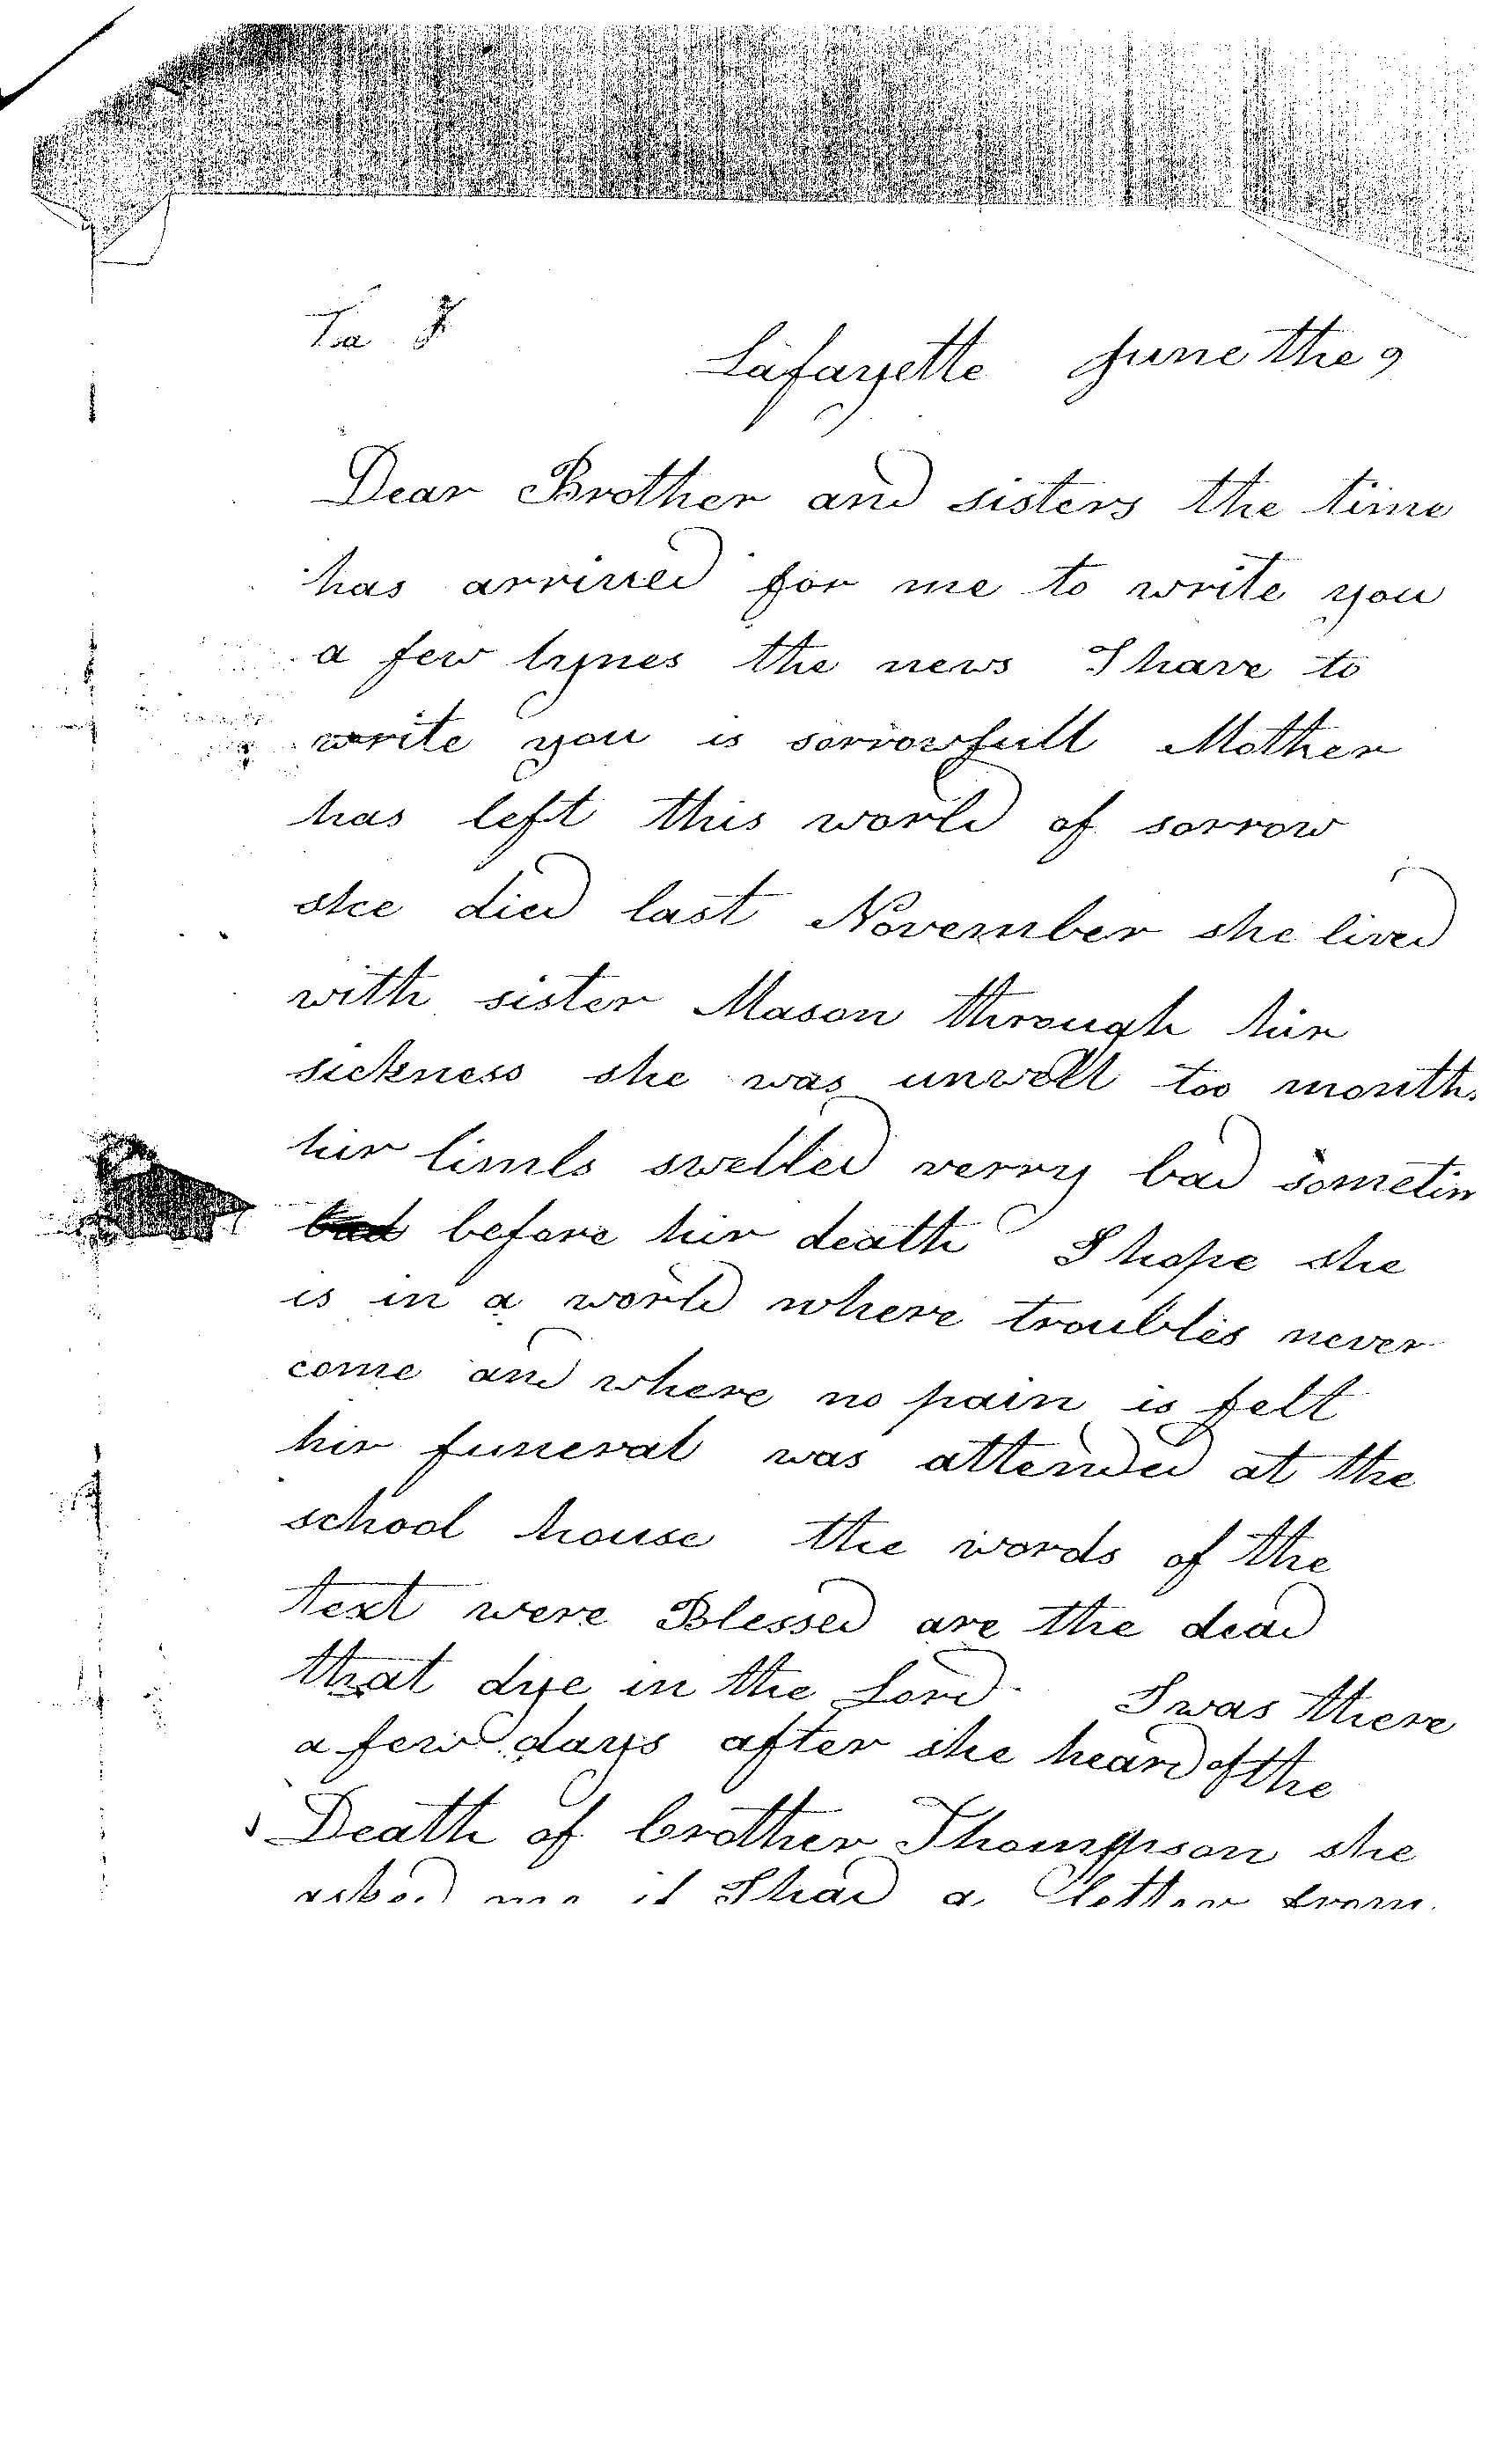 Lafayette June the 9
Dear Brother and sisters the time
has arrived for me to write you
a few lynes the news I have to
write you is sorrowfull Mother
has left this world of sorrow
she died last November she lived
with sister Mason through hir
sickness she was unwell too months
hir limls swelled verry bad sometim
bad before hir death I hope she
is in a world where troubles never
come and where no pain is felt
hir funeral was attended at the
school house the words of the
text were Blessed are the dead
that dye in the Lord I was there
a few days after she heard of the
Death of brother Thompson she
asked me if I had a letter from